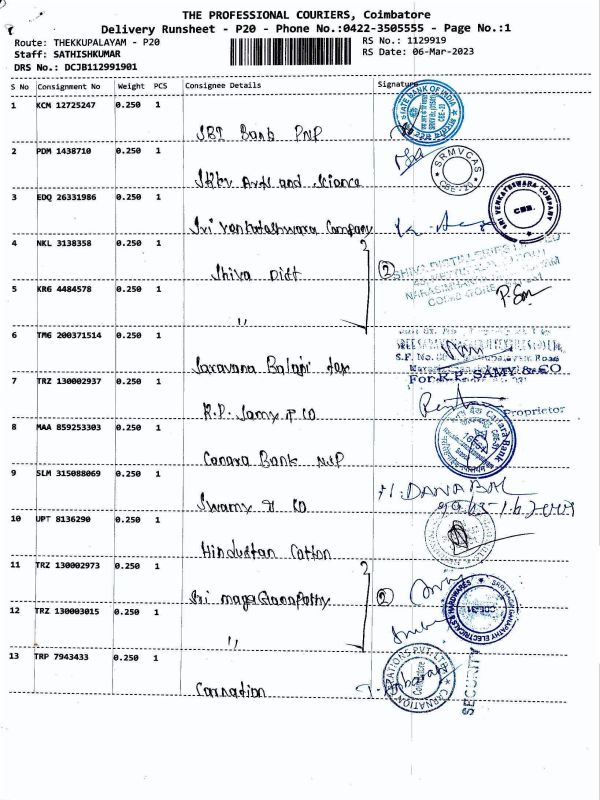 THE PROFESSIONAL COURIERS, Coimbatore
Delivery Runsheet - P20 - Phone No.:0422-3505555 - Page No.:1
Route: THEKKUPALAYAM - P20 RS No.: 1129919
Staff: SATHISHKUMAR RS Date: 06-Mar-2023
DRS No.: DCJB112991901
S No Consignment No Weight PCS Consignee Details Signature
1 KCM 12725247 0.250 1
STATE BANK OF INDIA
SBI Bank PNP
2 PDM 1438710 0.250 1
SRMVCAS
CBE-20
Arts and Science
3 EDQ 26331986 0.250 1
SRI VENKATESHWARA COMPANY
CBE.
Sri Venkateshwara Company
4 NKL 3138358 0.250 1
Shiva Dist
2
SHIVA DISTILLERIES LIMITED
5 KRG 4484578 0.250 1
"
6 TMG 200371514 0.250 1
Saravana Balaji tex
S.F. No.
Road
7 TRZ 130002937 0.250 1
For K.P. SAMY & CO
K.P. Samy & CO
Proprietor
8 MAA 859253303 0.250 1
Canara Bank
Canara Bank NSP
9 SLM 315088069 0.250 1
Swamy & CO
10 UPT 8136290 0.250 1
Hindustan Cotton
11 TRZ 130002973 0.250 1
2
12 TRZ 130003015 0.250 1
"
13 TRP 7943433 0.250 1
Carnation
CARNATIONS PVT. LTD.
Coimbatore
SECURITY